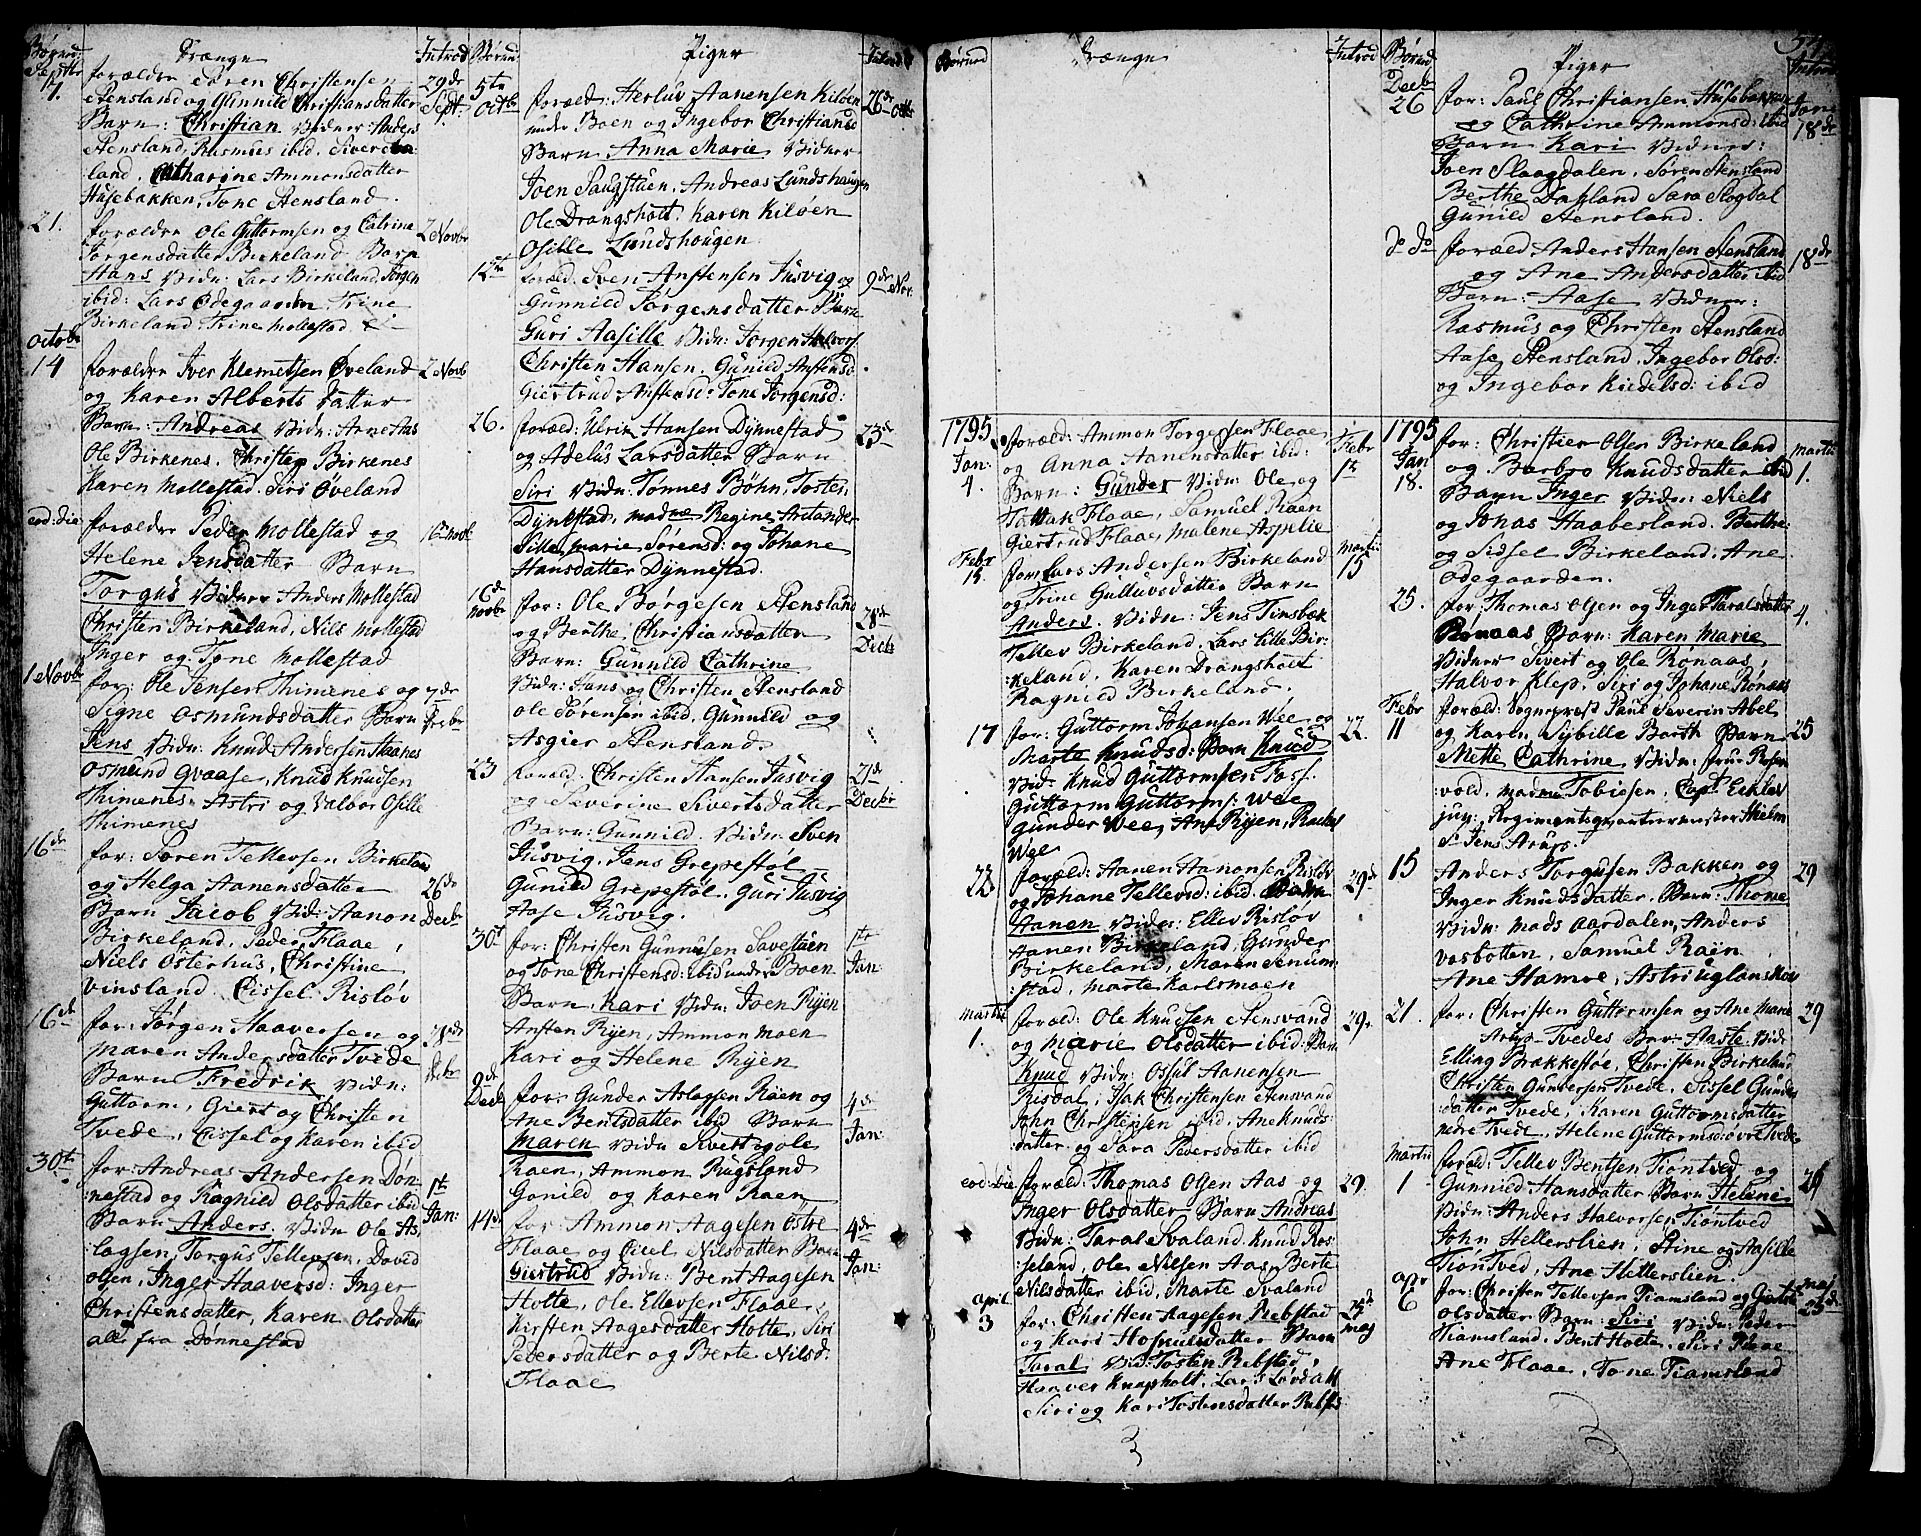 Drænge
Introd
Septbr
17.
forældre Søren Christensen
Stensland og Gunnild Christiansdatter
Barn: Christian Vidner Anders
Stensland, Rasmus ibid. Siver
land, Catharine Ammonsdatter
Husebakken, Tone Stensland.
29de
Sept:
21.
forældre Ole Guttormsen og Catrine
Jorgensdatter Birkeland. Barn
Hans Vidn: Lars Birkeland, Jorgen
ibid: Lars Ødegaarden Trine
Birkeland, Trine Mollestad
2 Novbr
Octobr
14
forældre Iver Klemetsen Øveland
og Karen Alberts datter
Barn: Andreas Vidn: Arne Aas
Ole Birkenes, Christen Birkenes
Karen Mollestad. Siri Øveland
2 Novb
eod: die
forældre Peder Mollestad og
Helene Jensdatter Barn
Torgus Vidner Anders Mollestad
Christen Birkeland, Nils Mollestad
Inger og Tone Mollestad
16 Novb
1 Novbr
for: Ole Jensen Thimenes og
Signe Osmundsdatter Barn
Jens Vidn: Knud Andersen Haanes
Osmund Graase, Knud Knudsen
Thimenes. Astri og Valbor Osille
Thimenes
7de
Decbr
16de
for: Søren Tellevsen Birkeland
og Helga Aanensdatter
Barn Jacob Vid: Aanon
Birkeland, Peder Flaae,
Niels Østerhus, Christine
Vinsland Cissel Risløv
26de
Decbr
16de
for: Jørgen Haaversen og
Maren Andersdatter Tvede
Barn Fredrik Vidn:
Guttorm, Giert og Christen
Tvede, Cissel og Karen ibid
28de
Decbr
30te
for: Andreas Andersen Døn-
nestad og Ragnild Olsdatter ibid
Barn Anders. Vidn Ole As-
lagsen, Torgus Tellevsen, Doved
Olsen, Inger Haaversd: Inger
Christensdatter, Karen Olsdatter
all fra Donnestad
1te
Jan:
Piger
Introd
5te
Octb
foræld: Herluv Aanensen Kiløen
under Boen og Ingebor Christiansd
Barn Anna Marie Vidner
Joen Saugstuen, Andreas Lundshaugen
Ole Drangsholt. Karen Kiløen
Osille Lundshougen
26de
Octb
12te
foræld. Sven Anstensen Tusvig og
Gunnild Jørgensdatter Barn
Guri Aasille Vidn: Jorgen Halvors.
Christen Hansen. Gunild Anstensd
Giertrud Anstensd: Tone Jorgensd:
9de Nov:
26.
foræld: Ulrik Hansen Dynnestad
og Adelus Larsdatter Barn
Siri Vidn: Tønnes Bøhn, Tosten
Dynnestad, Madme Regine Arctander
Sille Marie Sørensd: og Johane
Hansdatter Dynnestad.
23de
16de
Novbr
for: Ole Børgesen Stensland
og Berthe Christiansdatter
Barn: Gunnild Cathrine
Vidn: Hans og Christen Stensland
Ole Sørensen ibid. Gunnild og
Asgier Stensland.
28de
Decbr
23
foræld: Christen Hansen Tusvig
og Severine Sivertsdatter
Barn: Gunnild. Vidn: Sven
Tusvig, Jens Grepestøl
Gunild Grepestøl. Guri Tusvig
Aase Tusvig.
21de
Decbr
30te
for: Christen Gunnusen Savestuen
og Tone Christensd: ibid under Boen
Barn Kari Vidn: Joen Ryen
Ansten Ryen, Ammon Moen
Kari og Helene Ryen
1te
Jan:
2de
Decb
for: Gunder Aslagsen Raen og
Ane Bentsdatter ibid Barn
Maren Vidn Sivert og Ole
Raen, Ammon Rugsland
Gonild og Karen Raen
4de
Jan:
14de
for: Ammon Aagesen Østre
Flaae og Cicel Nilsdatter Barn
Giertrud Vidn: Bent Aagesen
Holte, Ole Ellevsen Flaae,
Kirsten Aagesdatter Holte, Siri
Pedersdatter og Berte Nilsd.
Flaae
4de
Jan:
Drænge
Introd
1795
Jan:
4.
foræld: Ammon Torgersen Flaae
og Anna Aanensdatter ibid:
Barn: Gunder Vidn: Ole og
Tollak Flaae, Samuel Raen
Giertrud Flaae, Malene Aspelie
Febr
1te
Febr
15.
for: Lars Andersen Birkeland
og Trine Gulluvsdatter Barn
Anders. Vidn: Jens Tinsbek
Tellev Birkeland, Lars Lille Bir-
keland, Karen Drangsholt
Ragnild Birkeland.
Martii
15
17
for: Guttorm Johansen Wee og
Marte Knudsd: Barn Knud
Vid: Knud Guttormsen Foss.
Guttorm Guttorms: Wee
Gunder Wee, Ane Ryen, Rachel
Wee
22.
22
foræld: Aanen Aanonsen Risløv
og Johane Tellevsd: ibid Barn
Aanen Vidn: Ellev Risløv
Aanen Birkeland, Gunder
Birkeland, Maren Senum-
stad, Marte Karlsmoen
29de
Martii
1.
foræld: Ole Knudsen Stensvand
og Marie Olsdatter ibid: Barn
Knud Vidn: Ossul Aanensen
Risdal, Isak Christensen Stensvand
John Christensen ibid, Ane Knuds-
datter og Sara Pedersdatter ibid
29.
eod: Die
foræld: Thomas Olsen Aas og
Inger Olsdatter Barn Andreas
Vidn: Taral Svaland. Knud Ros-
seland, Ole Nilsen Aas, Berte
Nilsdatter ibid, Marte Svaland
29.
April
3
for: Christen Aagesen Rebstad
og Kari Hofmulsdatter Barn
Taral Vid: Tosten Rebstad,
Haaver Knapholt. Lars Løvdahl
Siri og Kari Tostensdatter
25de
Maj
Piger
Introd
Decb
26
for: Paul Christiansen Husebakken
og Cathrine Ammonsd: ibid
Barn Kari Vidner:
Joen Slaagdalen, Søren Stensland
Berthe Dahland Sara Slogdal
Gunild Stensland.
Jan:
18de
Do Do
foræld Anders Hansen Stensland
og Ane Andersdatter ibid
Barn: Aase Vidner:
Rasmus og Christen Stensland
Aase Stensland, Ingebor Olsd:
og Ingebor Kiedelsd: ibid
18de
1795
Jan
18.
for: Christen Olsen Birkeland
og Barbro Knudsdatter ibid
Barn Inger Vidn: Niels
og Jonas Haabesland. Berthe
og Sidsel Birkeland: Ane
Ødegaarden.
Martii
1.
25.
for: Thomas Olsen og Inger Taralsdatter
Rønaas Barn: Karen Marie
Vidner Sivert og Ole Rønaas,
Halvor Klep, Siri og Johane Rønaas
4.
Febr
11
foræld: Sognepræst Paul Severin Abel
og Karen Sybille Barth Barn
Mette Cathrine, Vidn: Frue Rosen-
vold, Madme Tobiesen, Capt Eckleo
jun: Regimentsqvarteermester Thielm
Sr Jens Arup.
25
15
Anders Torgusen Bakken og
Inger Knudsdatter. Barn: Thone
Vidn: Mads Aardalen, Anders
Vasbotten, Samuel Raen,
Ane Hamre, Astri Uglanskou
29
21.
for: Christen Guttormsen og Ane Marie
Tvedes Barn Aaste Vidn
Elling Brakkestøe, Christen Birkeland
Christen Gundersen Tvede, Sissel Gunders-
datter Tvede, Karen Guttormsdatter
nedre Tvede, Helene Guttormsd: øvre Tvede
29
Martii
1
foræld: Tellev Bentsen Tiøntved og
Gunnild Hansdatter Barn Helene
Vidn: Anders Halvorsen Tiøntved
John Hellerslien, Stine og Aasille
Tiøntved, Ane Hellerslien.
29
Apr
6
for: Christen Tellevsen Tiamsland og Giertrud
Olsdatter Barn: Siri Vidn: Peder
Tiamsland, Bent Holte, Siri
Ane Flaae, Tone Tiamsland
Maj
25de